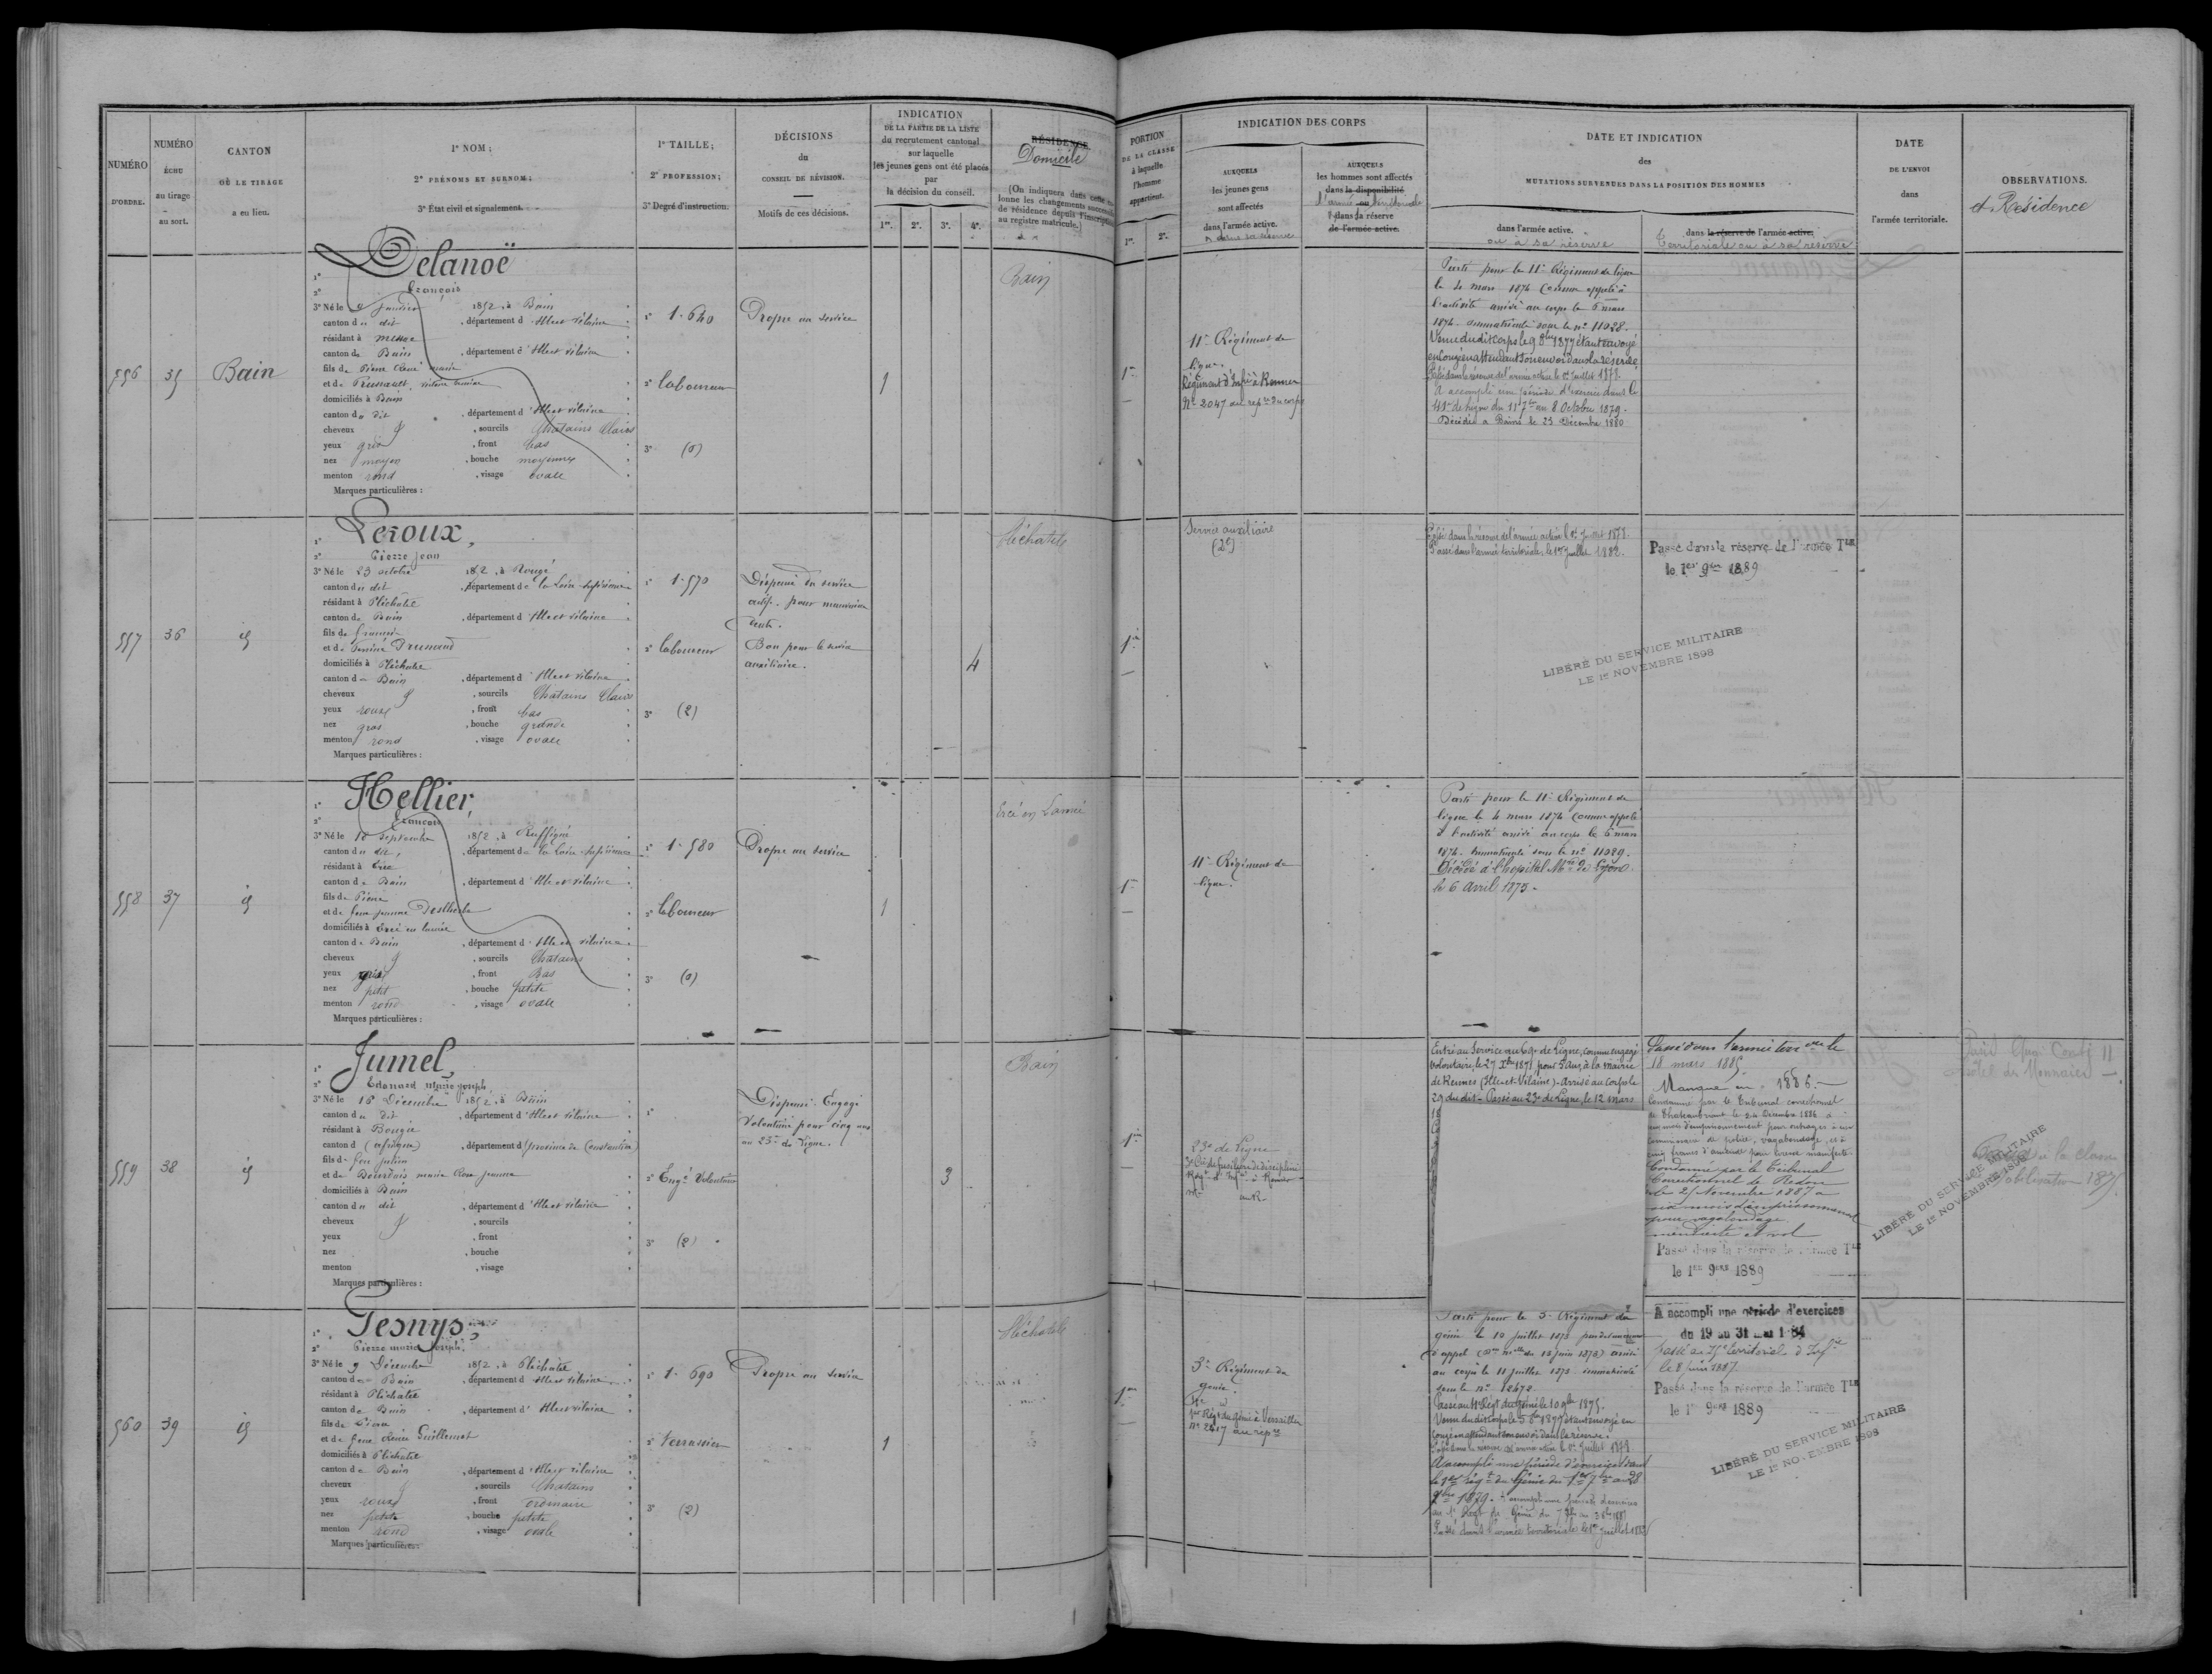 NUMÉRO
D'ORDRE.
NUMÉRO
ÉCHU
au tirage
au sort.
CANTON
OÙ LE TIRAGE
a eu lieu.
1º NOM;
2º PRÉNOMS ET SURNOM;
3º État civil et signalement.
1º TAILLE;
2º PROFESSION;
3º Degré d'instruction.
DÉCISIONS
du
CONSEIL DE RÉVISION.
Motifs de ces décisions.
INDICATION
DE LA PARTIE DE LA LISTE
du recrutement cantonal
sur laquelle
les jeunes gens ont été placés
par
la décision du conseil.
1re. 2e. 3e. 4e.
RÉSIDENCE
Domicile
(On indiquera dans cette
lonne les changements successifs
de résidence depuis l'inscription
au registre matricule.)
PORTION
DE LA CLASSE
à laquelle
l'homme
appartient.
1re. 2e.
INDICATION DES CORPS
AUXQUELS
les jeunes gens
sont affectés
dans l'armée active.
AUXQUELS
les hommes sont affectés
dans la disponibilité
l'armée territoriale
dans la réserve
de l'armée active.
DATE ET INDICATION
des
MUTATIONS SURVENUES DANS LA POSITION DES HOMMES
dans l'armée active.
ou à sa réserve
dans la réserve de l'armée active.
Territoriale ou à sa réserve
DATE
DE L'ENVOI
dans
l'armée territoriale.
OBSERVATIONS.
et Résidence
556
35
Bain
1º Delanoë
2º François
3º Né le Janvier 1852, à Bain
canton du dit, département d'Ille et Vilaine
résidant à Messac
canton de Bain, département d'Ille et Vilaine
fils de Pierre
domiciliés à Bain
canton du dit, département d'Ille et Vilaine
cheveux, sourcils Chatains Clairs
yeux gris, front bas
nez moyen, bouche moyenne
menton rond, visage ovale
Marques particulières :
1º 1.640
2º laboureur
3º (0)
Propre au service
1
Bain
1re
11e Régiment de
ligne.
Régiment d'Infie à Rennes
Nº 2047 au repre du corps
Parti pour le 11e Régiment de ligne
le 4 mars 1874 Comme appelé à
l'activité arrivé au corps le 6 mars
1874. Immatriculé sous le nº 11028.
Venu dudit Corps le 9 8bre 1877 étant envoyé
en Congé en attendant son envoi dans la réserve
Passé dans la réserve de l'armée active le 1er Juillet 1878.
A accompli une période d'exercice dans le
41e de ligne du 11 7bre au 8 Octobre 1879.
Décédé à Bains le 25 Décembre 1880
557
36
id
1º Leroux,
2º Pierre Jean
3º Né le 23 octobre 1852, à Rougé
canton du dit, département de la Loire Inférieure
résidant à Pléchatel
canton de Bain, département d'Ille et Vilaine
fils de François
domiciliés à Pléchatel
canton de Bain, département d'Ille et Vilaine
cheveux, sourcils Chatains Clairs
yeux roux, front bas
nez gros, bouche grande
menton rond, visage ovale
Marques particulières :
1º 1.570
2º laboureur
3º (2)
Dispensé du service
actif. pour mauvaise
dents.
Bon pour le service
auxiliaire.
4
Pléchatel
1re
Service auxiliaire
(2e)
Passé dans la réserve de l'armée active le 1er Juillet 1878.
Passé dans l'armée territoriale, le 1er Juillet 1882.
Passé dans la réserve de l'armée Tle
le 1er 9bre 1889
LIBÉRÉ DU SERVICE MILITAIRE
LE 1er NOVEMBRE 1898
558
37
id
1º Hellier,
2º François
3º Né le 18 Septembre 1852, à Ruffigné
canton du dit, département de la Loire Inférieure
résidant à Ercé
canton de Bain, département d'Ille et Vilaine
fils de Pierre
domiciliés à Ercé en Lamée
canton de Bain, département d'Ille et Vilaine
cheveux, sourcils Chatains
yeux gris, front Bas
nez petit, bouche petite
menton rond, visage ovale
Marques particulières :
1º 1.580
2º laboureur
3º (0)
Propre au service
1
Ercé en Lamée
1re
11e Régiment de
ligne.
Parti pour le 11e Régiment de
ligne le 4 mars 1874 Comme appelé
à l'activité arrivé au corps le 6 mars
1874. Immatriculé sous le nº 11029.
Décédé à l'hopital Mre de Lyon
le 6 Avril 1875.
559
38
id
1º Jumel,
2º Edouard Marie Joseph
3º Né le 16 Décembre 1852, à Bain
canton du dit, département d'Ille et Vilaine
résidant à Bougie
canton d (Afrique), département d (province de Constantine)
fils de feu Julien
et de Bourdais Marie Rose Jeanne
domiciliés à Bain
canton du dit, département d'Ille et Vilaine
cheveux, sourcils
yeux, front
nez, bouche
menton, visage
Marques particulières :
1º
2º Engé Volontaire
3º (2)
Dispensé. Engagé
Volontaire pour cinq ans
au 23e de ligne.
3
Bain
1re
23e de Ligne
3e Cie de fusiliers de discipline
Régt d'Infie à Rennes
Entré au Service au 69e de Ligne, comme engagé
volontaire, le 27 Xbre 1871 pour 5 ans, à la mairie
de Rennes (Ille et Vilaine) - Arrivé au Corps le
29 du dit - Passé au 23e de Ligne, le 12 mars
Passé dans l'armée terriale le
18 mars 1885.
Manque en 1886.
Condamné par le Tribunal correctionnel
de Chateaubriant le 24 Décembre 1886 à
un mois d'emprisonnement pour outrages à un
commissaire de police, vagabondage, et à
cinq francs d'amende pour ivresse manifeste
Condamné par le Tribunal
Correctionnel de Redon
le 25 Novembre 1887 à
six mois d'emprisonnement
pour vagabondage,
mendicité et vol
Passé dans la réserve de l'armée Tle
le 1er 9bre 1889
Paris Quai Conti 11
Hôtel des Monnaies
à la classe
mobilisation 1875
LIBÉRÉ DU SERVICE MILITAIRE
LE 1er NOVEMBRE 1898
560
39
id
1º Gesnys
2º Pierre Marie Joseph
3º Né le 9 Décembre 1852, à Pléchatel
canton de Bain, département d'Ille et Vilaine
résidant à Pléchatel
canton de Bain, département d'Ille et Vilaine
fils de
domiciliés à Pléchatel
canton de Bain, département d'Ille et Vilaine
cheveux, sourcils Chatains
yeux roux, front ordinaire
nez petit, bouche petite
menton rond, visage ovale
Marques particulières :
1º 1.690
2º Terrassier
3º (2)
Propre au service
1
Pléchatel
1re
3e Régiment du
génie.
1er Régt du génie à Versailles
nº 2417 au repre
Parti pour le 3e Régiment du
génie le 10 Juillet 1873
d'appel arrivé
au corps le 11 Juillet 1873 immatriculé
sous le nº 12472.
Passé au 4e Régt du Génie le 10 9bre 1875.
Venu dudit Corps le 5 8bre 1877 étant envoyé en
Congé en attendant son envoi dans la réserve.
Passé dans la réserve de l'armée active le 1er Juillet 1878.
A accompli une période d'exercices dans
le 1er Régt du Génie du 1er 7bre au 28
7bre 1879. A accompli une période d'exercices
au 1er Régt du Génie du
Passé dans l'armée territoriale le 1er Juillet 1882
A accompli une période d'exercices
du 19 au 31 mai 1884
Passé au territorial d'Infie
le 8 Juin 1887
Passé dans la réserve de l'armée Tle
le 1er 9bre 1889
LIBÉRÉ DU SERVICE MILITAIRE
LE 1er NOVEMBRE 1898